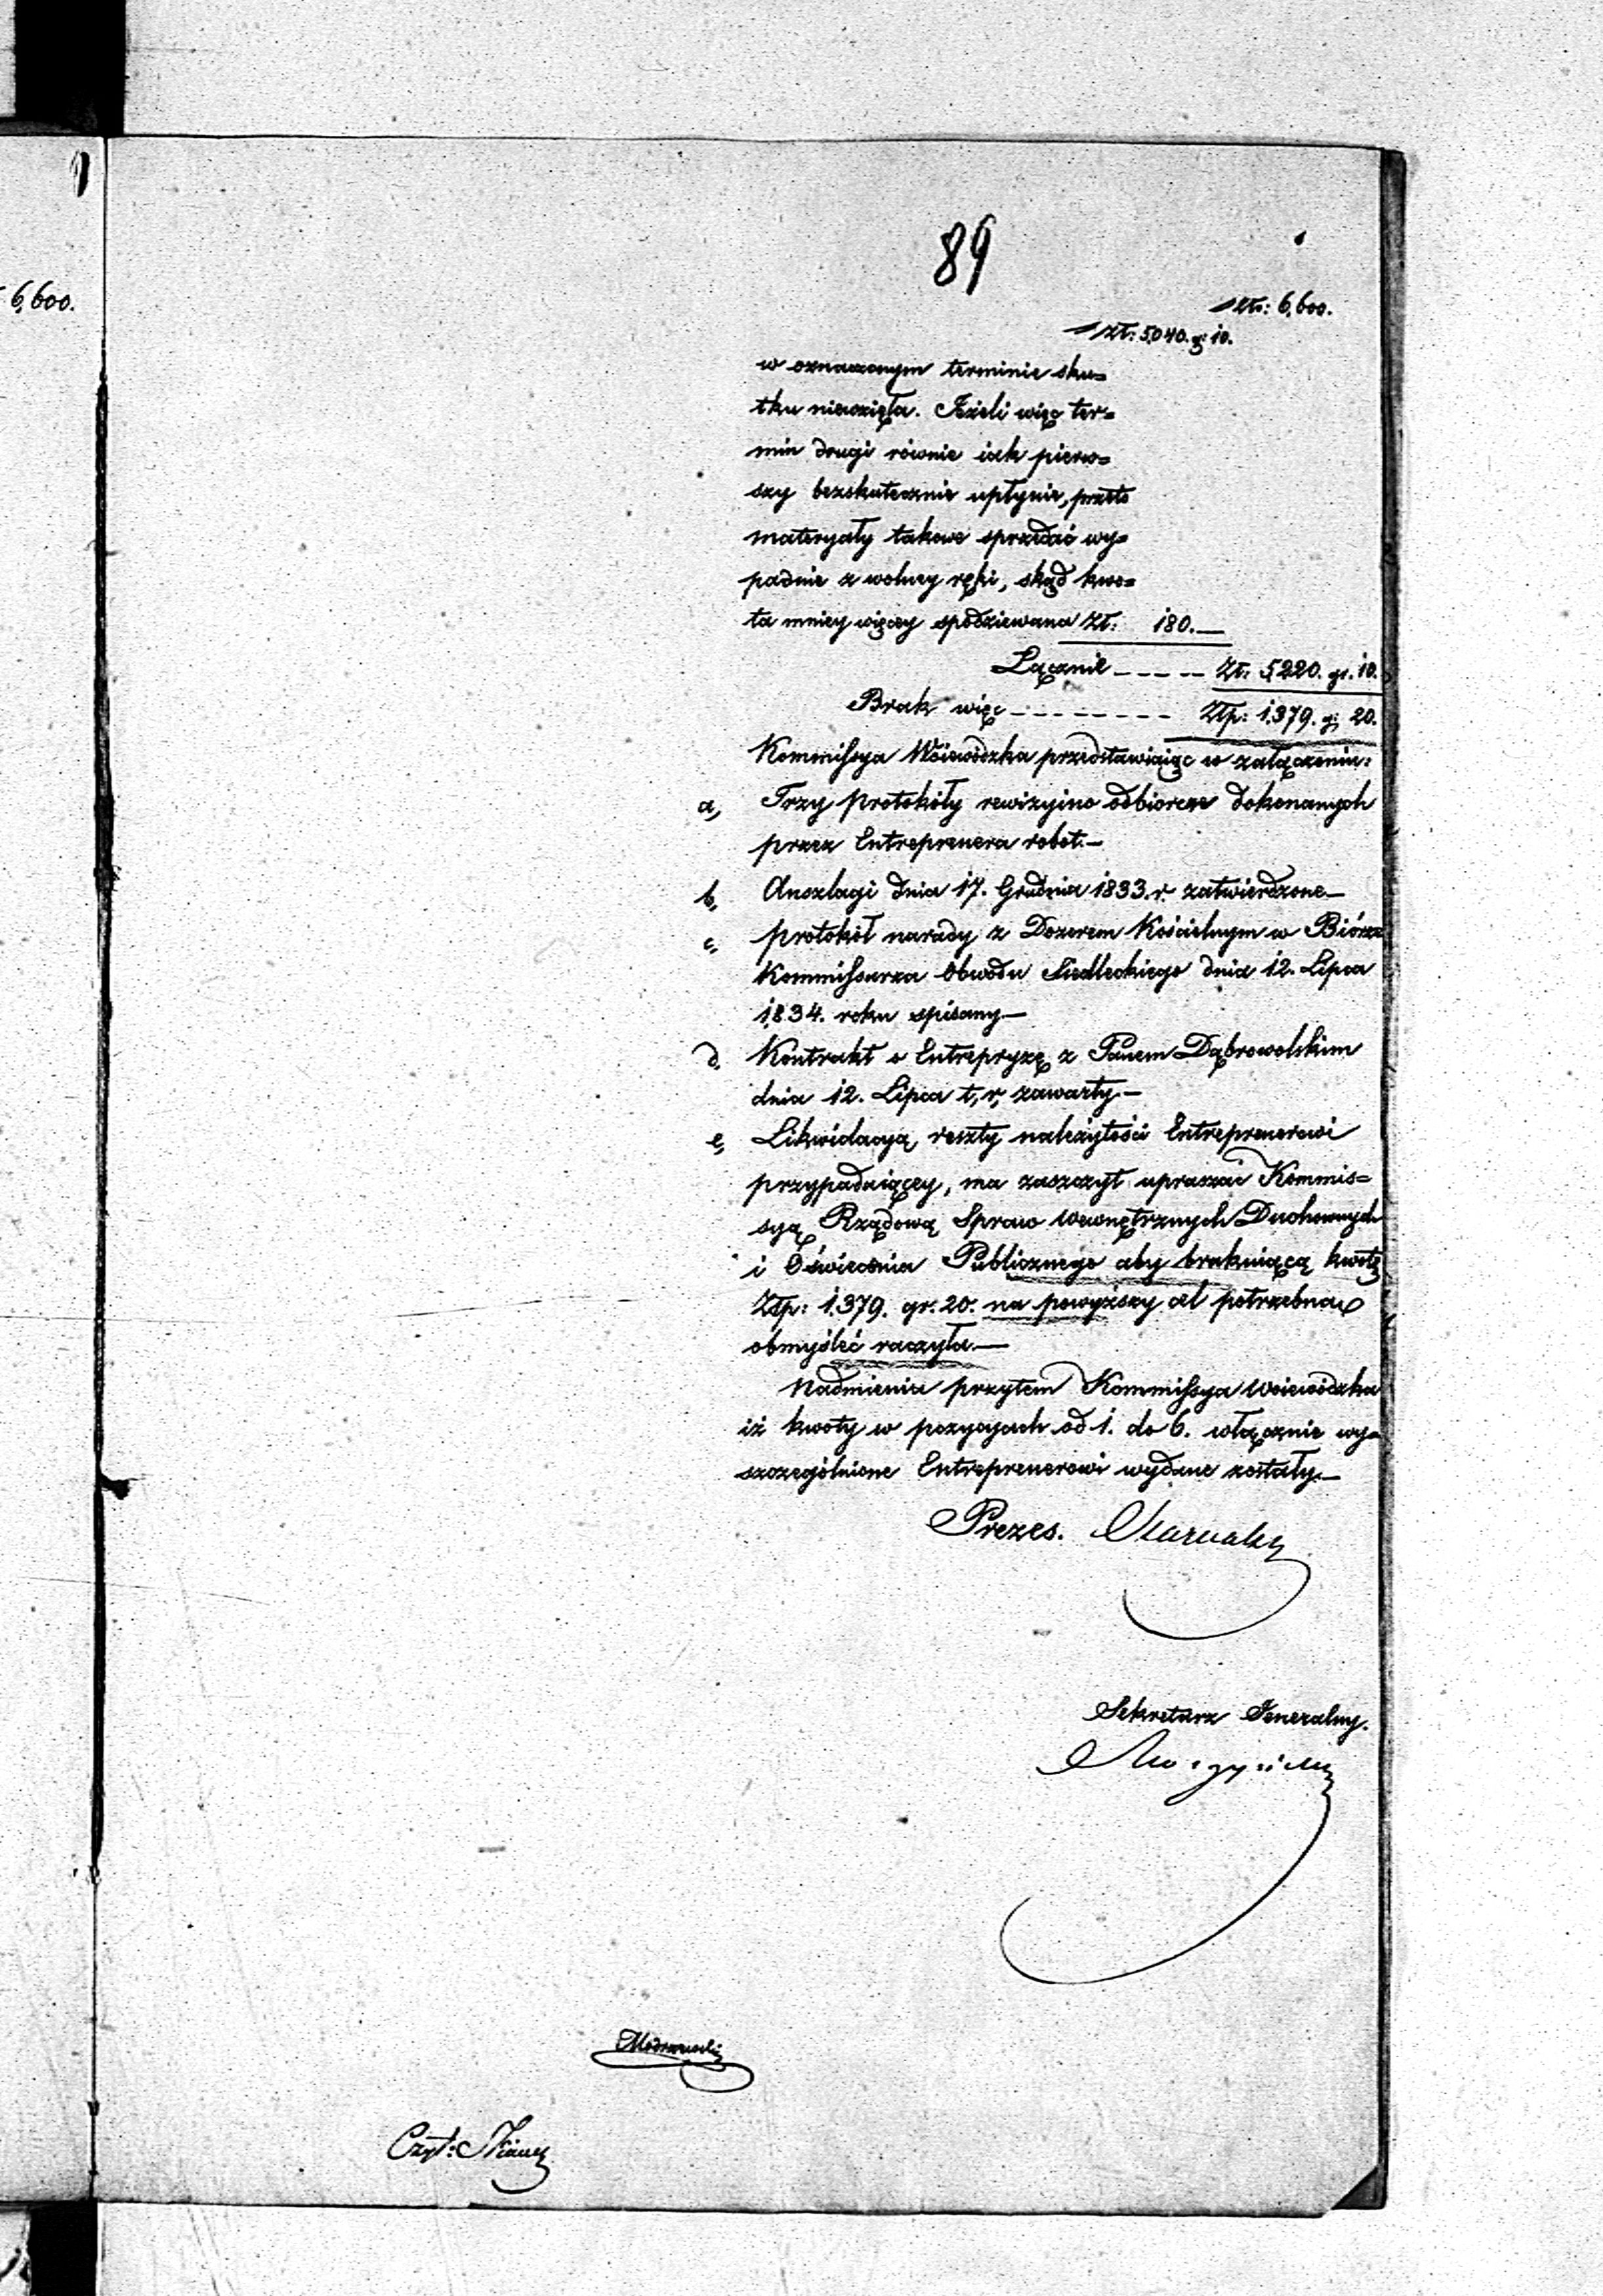 6,600.
89
złt: 6,600.
Zł: 5,040. gr: 10.
w oznaczonym terminie sku=
tku niewzięła. Jeżeli więc ter=
min drugi równie iak pierw=
szy bezskutecznie upłynie, przeto
materyały takowe sprzedać wy=
padnie z wolney ręki, skąd kwo=
ta mniey więcey spodziewana Zł: 180.—
Łącznie ---- Zł: 5,220. gr. 10.
Brak więc -------- Złp: 1,379. gr 20.
Kommissya Woiewódzka przedstawiaiąc w załączeniu:
a, Trzy protokóły rewizyino odbiorcze dokonanych
przez Entreprenera robot.—
b, Anszlagi dnia 17. Grudnia 1833. r. zatwierdzone—
c, protokół narady z Dozorem Kościelnym w Biórze
Kommissarza Obwodu Siedleckiego dnia 12. Lipca
1,834. roku spisany—
d, Kontrakt o Entrepryzę z Panem Dąbrowolskim
dnia 12. Lipca t, r, zawarty.—
e, Likwidacyą reszty należytości Entreprenerowi
przypadaiącey, ma zaszczyt upraszać Kommis=
syą Rządową Spraw Wewnętrznych Duchownych
i Oświecenia Publicznego aby brakuiącą kwotę
Złp: 1,379. gr. 20. na powyższy cel potrzebną
obmyśleć raczyła.—
Nadmienia przytem Kommissya Woiewódzka
iż kwoty w pozycyach od 1. do 6. włącznie wy=
szczególnione Entreprenerowi wydane zostały.—
Prezes.
Sekretarz Jeneralny.
Modrzewski
Czyt: